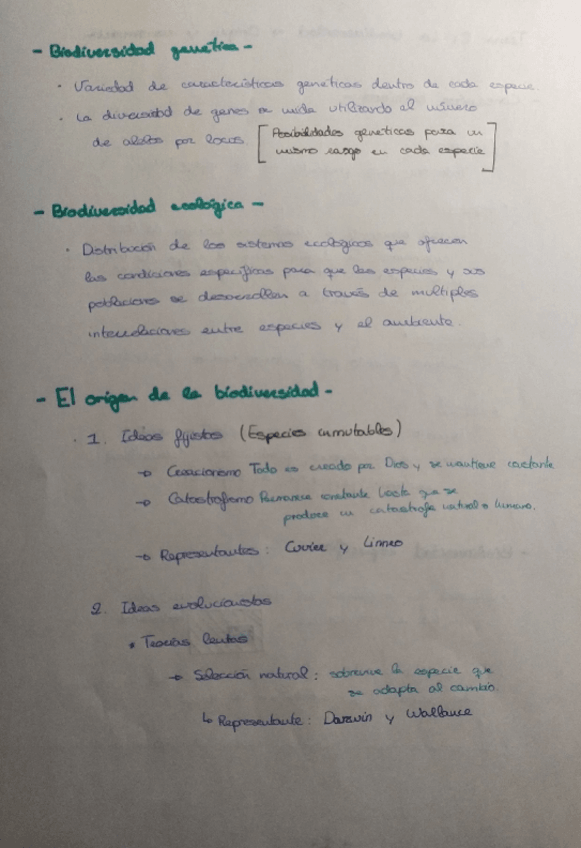 - Biodiversidad genética -
· Variedad de características genéticas dentro de cada especie.
· La diversidad de genes se mida utilizando el número
de alelos por locus. [Posibilidades genéticas para un
mismo rasgo en cada especie]
- Biodiversidad ecológica -
· Distribución de los sistemas ecológicos que ofrecen
las condiciones específicas para que las especies y sus
poblaciones se desarrollen a través de múltiples
interrelaciones entre especies y el ambiente.
- El origen de la biodiversidad -
· 1. Ideas fijistas (Especies inmutables)
→ Creacionismo Todo es creado por Dios y se mantiene constante
→ Catastrofismo Permanece constante hasta que se
produce un catastrofe natural o humano.
→ Representantes: Cuvier y Linneo
2. Ideas evolucionistas
* Teorías lentas
→ Selección natural: sobrevive la especie que
se adapta al cambio.
↳ Representante: Darwin y Wallance